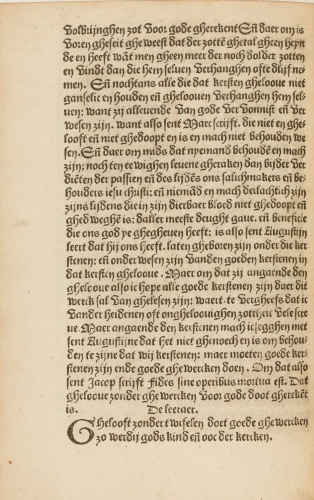 volbrijnghen zot voor gode gherekent Eñ daer om is
voren gheseit ghe weest dat der zottē ghetal gheen heyn
de en heeft wāt men gheen meer der noch dolder zotten
en vindt dan die hem seluen verhanghen ofte dlijf ne-
men. Eñ nochtans alle die dat kersten gheloove niet
ganselic en houden eñ gheloouen verhanghen hem sel-
uen: want zij alleuende van gode ver vonnist eñ ver
wesen zijn. want also sent Marc scrijft. die niet en ghe-
looft eñ niet ghedoopt en is en mach niet behouden we
sen. Eñ daer om mids dat nyemand behoudē en mach
zijn: noch ten eewighen leuene gheraken dan bijder ver
diētēn der passien eñ des lijdēs ons salichmakers eñ be-
houders iesu christi: eñ niemād en mach deilachtich zijn
zijns lijdens die in zijn dierbaer bloed niet ghedoopt eñ
ghed weghē is: dallermeeste deught gaue. eñ beneficie
die ons god ye ghegheuen heeft: is also sent Augustijn
leert dat hij ons heeft. laten gheboren zijn onder die ker
stenen: eñ onder wesen zijn vanden goeden kerstenen in
dat kersten gheloove. Maer om dat zij angaende den
gheloove also ic hope alle goede kerstenen zijn daer dit
werck sal van ghelesen zijn: waert te vergheefs dat ic
vander heidenen oft ongheloouighen zottijen vele scre
ve. Maer angaende den kerstenen mach ic segghen met
sent Augustijne dat het niet ghenoech en is om behou-
den te zijne dat wij kerstenen: maer moeten goede ker-
stenen zijn ende goede ghe wercken doen. Om dat also
sent Jacop scrijft Fides sine operibus mortua est. Dat
ghelooue zonder ghe wercken voor gode doot gherekēt
is. De leeraer.
Ghelooft zonder twifelen doet goede ghe wercken
zo werdij gods kind eñ ooc der kercken.